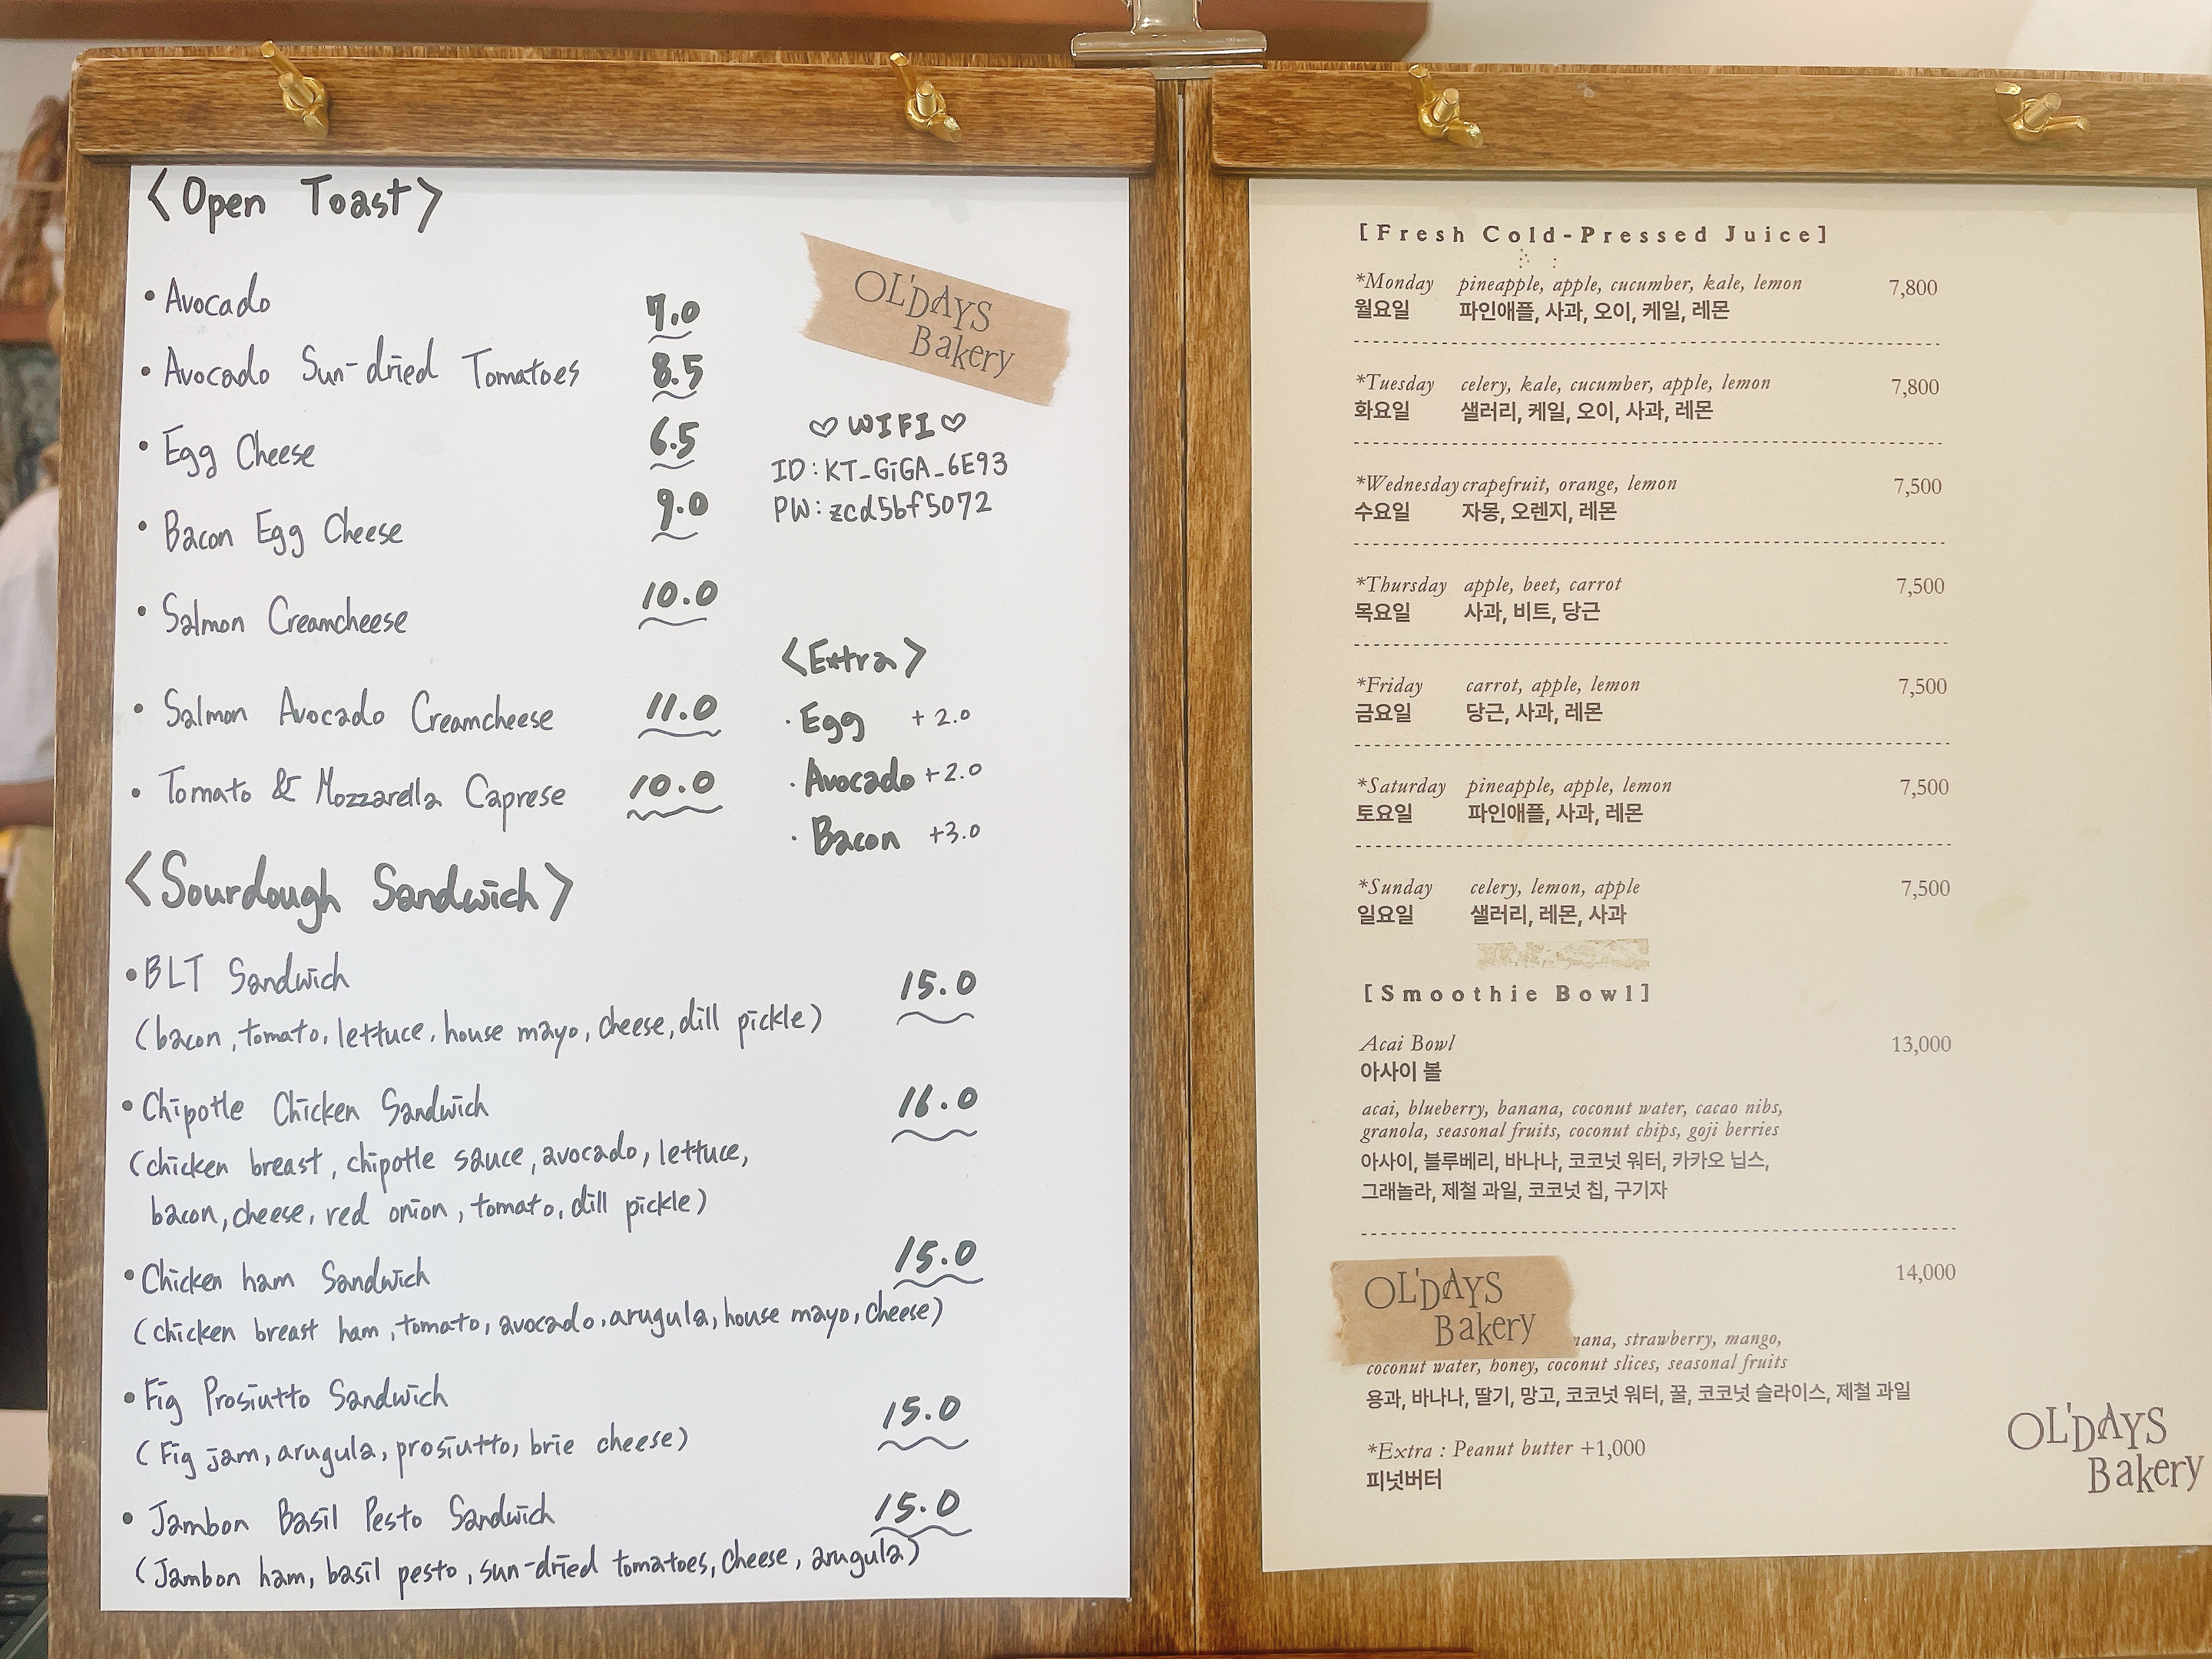 <Open Toast>
• Avocado 7.0
• Avocado Sun-dried Tomatoes 8.5
• Egg Cheese 6.5
• Bacon Egg Cheese 9.0
• Salmon Creamcheese 10.0
• Salmon Avocado Creamcheese 11.0
• Tomato & Mozzarella Caprese 10.0
OL'DAYS
Bakery
♡ WIFI ♡
ID : KT_GiGA_6E93
PW : zcd5bf5072
<Extra>
· Egg +2.0
· Avocado +2.0
· Bacon +3.0
<Sourdough Sandwich>
• BLT Sandwich 15.0
(bacon, tomato, lettuce, house mayo, cheese, dill pickle)
• Chipotle Chicken Sandwich 16.0
(chicken breast, chipotle sauce, avocado, lettuce,
bacon, cheese, red onion, tomato, dill pickle)
• Chicken ham Sandwich 15.0
(chicken breast ham, tomato, avocado, arugula, house mayo, cheese)
• Fig Prosiutto Sandwich 15.0
(Fig jam, arugula, prosiutto, brie cheese)
• Jambon Basil Pesto Sandwich 15.0
(Jambon ham, basil pesto, sun-dried tomatoes, cheese, arugula)
[Fresh Cold-Pressed Juice]
*Monday pineapple, apple, cucumber, kale, lemon 7,800
월요일 파인애플, 사과, 오이, 케일, 레몬
*Tuesday celery, kale, cucumber, apple, lemon 7,800
화요일 샐러리, 케일, 오이, 사과, 레몬
*Wednesday crapefruit, orange, lemon 7,500
수요일 자몽, 오렌지, 레몬
*Thursday apple, beet, carrot 7,500
목요일 사과, 비트, 당근
*Friday carrot, apple, lemon 7,500
금요일 당근, 사과, 레몬
*Saturday pineapple, apple, lemon 7,500
토요일 파인애플, 사과, 레몬
*Sunday celery, lemon, apple 7,500
일요일 샐러리, 레몬, 사과
[Smoothie Bowl]
Acai Bowl 13,000
아사이 볼
acai, blueberry, banana, coconut water, cacao nibs,
granola, seasonal fruits, coconut chips, goji berries
아사이, 블루베리, 바나나, 코코넛 워터, 카카오 닙스,
그래놀라, 제철 과일, 코코넛 칩, 구기자
14,000
OL'DAYS
Bakery
strawberry, mango,
coconut water, honey, coconut slices, seasonal fruits
용과, 바나나, 딸기, 망고, 코코넛 워터, 꿀, 코코넛 슬라이스, 제철 과일
*Extra : Peanut butter +1,000
피넛버터
OL'DAYS
Bakery